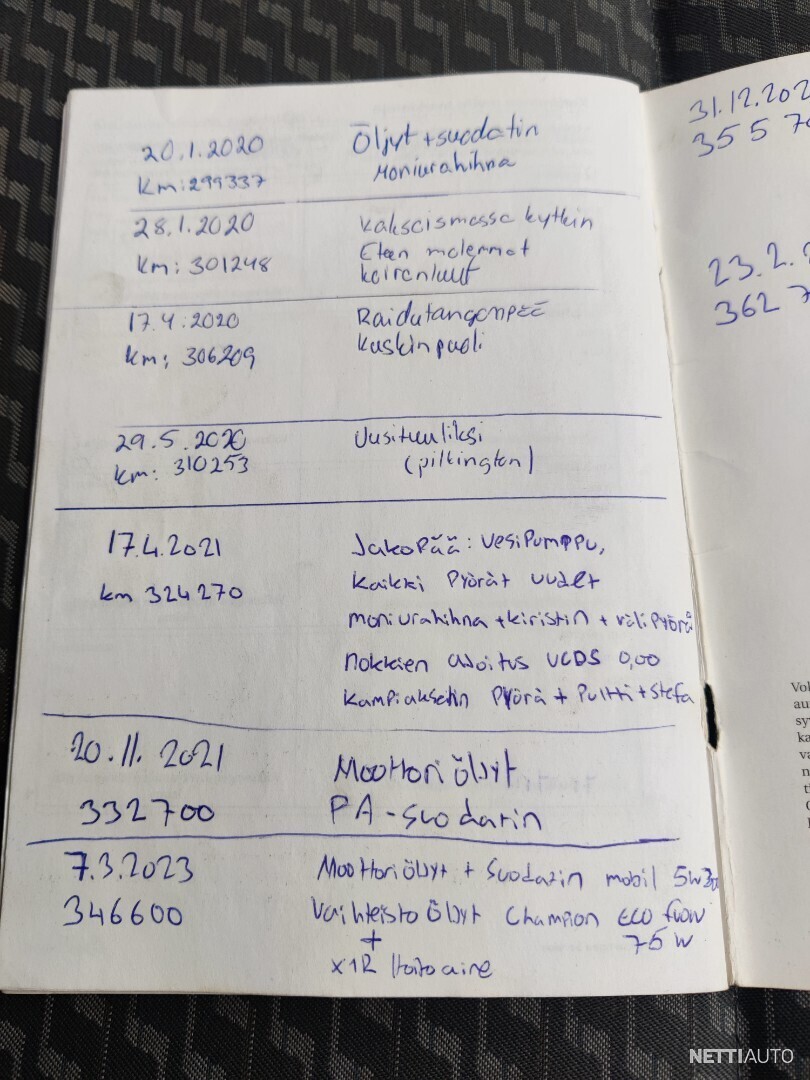 20.1.2020 Öljyt + suodatin
Km: 299337 Moniurahihna
28.1.2020 Kaksoismassa kytkin
Km: 301248 Eteen molemmat
koiranluut
17.4.2020 Raidetangonpää
Km: 306209 Kuskinpuoli
29.5.2020 Uusi tuuliksi
Km: 310253 (pilkington)
17.4.2021 Jakopää: vesipumppu,
km 324270 Kaikki Pyörät uudet
moniurahihna + kiristin + välipyörä
nokkien ajoitus VCDS 0,00
Kampiakselin Pyörä + Pultti + Stefa
20.11.2021 Moottori öljyt
332700 PA-suodatin
7.3.2023 Moottoriöljyt + Suodatin mobil 5w30
346600 Vaihteisto öljyt Champion Eco flow
75 W
+
x1R Hoitoaine
31.12.202
355 7
23.2.
362 7
Vol
au
sy
ka
va
n
NETTIAUTO